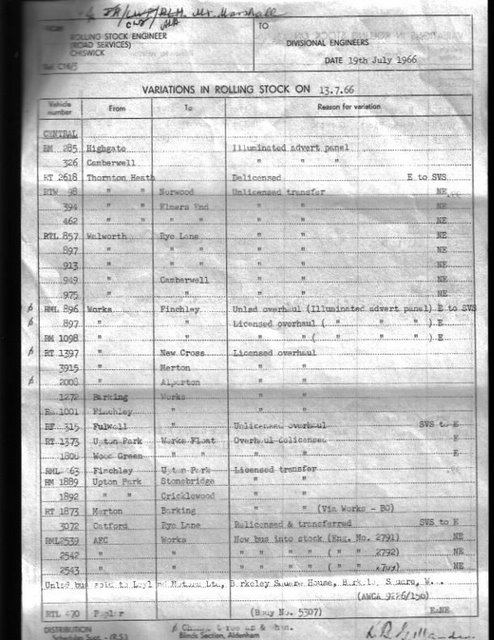 Mr. Marshall
FROM
ROLLING STOCK ENGINEER
(ROAD SERVICES)
CHISWICK
TO
DIVISIONAL ENGINEERS
DATE 19th July 1966
VARIATIONS IN ROLLING STOCK ON 13.7.66
Vehicle number From To Reason for variation
CENTRAL
RM 285 Highgate Illuminated advert panel
326 Camberwell " " "
RT 2618 Thornton Heath Delicensed E to SVS
RTW 98 " " Norwood Unlicensed transfer NE
394 " " Elmers End " " NE
462 " " " " " " NE
RTL 857 Walworth Rye Lane " " NE
897 " " " " " NE
913 " " " " " NE
949 " Camberwell " " NE
975 " " " " NE
ø RML 896 Works Finchley Unlsd overhaul (Illuminated advert panel) E to SVS
ø 897 " " Licensed overhaul ( " " " ) E
RM 1098 " " " " ( " " " ) E
ø RT 1397 " New Cross Licensed overhaul
3915 " Merton " "
ø 2008 " Alperton " "
1272 Barking Works " "
1001 Finchley " " "
RF 315 Fulwell " Unlicensed overhaul SVS to E
RT 1373 Upton Park Works Float Overhaul delicensed E
1806 Wood Green " " " " E
RML 63 Finchley Upton Park Licensed transfer
RM 1889 Upton Park Stonebridge " "
1892 " " Cricklewood " "
RT 1873 Merton Barking " " (Via Works - BO)
3072 Catford Rye Lane Relicensed & transferred SVS to E
RML2539 AEC Works New bus into stock (Eng. No. 2791) NE
2542 " " " " " " ( " " 2792) NE
2543 " " " " " " ( " " ) NE
Unlsd bus sold to Leyland Motors Ltd., Berkeley Square House, Berkeley Square, W..
RTL 470 Poplar (Body No. 5307) E to NE
DISTRIBUTION
Blinds Section, Aldenham